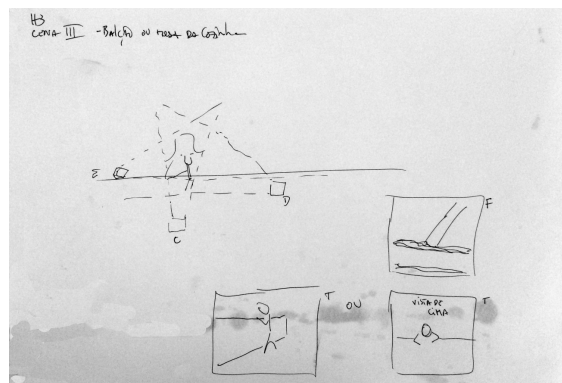 H3
CENA III - Balcão ou mesa da Cozinha
E
D
C
F
T OU T
VISTA DE
CIMA